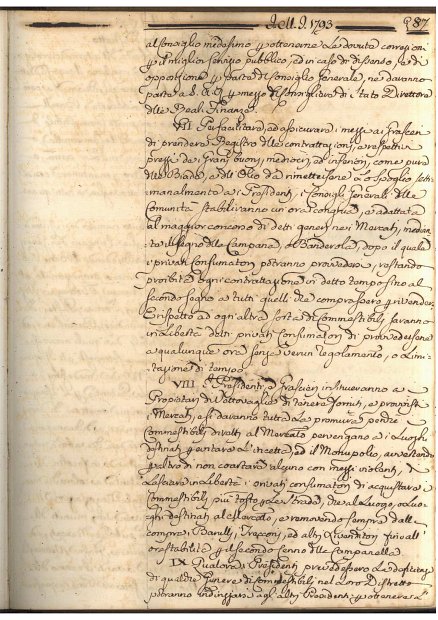 Dell' A. 1793 87
al Consiglio medesimo p ottenerne le dovute correzioni
p il miglior servizio pubblico, ed in caso di dissenso, e di
opposizione p parte del Consiglio Generale, ne daranno
parte a S. A. R. p mezzo del Consigliere di Stato Direttore
delle Reali Finanze.
VII Per facilitare, ed assicurare i mezzi ai Grascieri
di prendere Registro delle contrattazioni, e respettivi
prezzi de Grani buoni, mediocri, ed inferiori, come pure
delle Biade, e dell' Olio da rimettersene lo Spoglio setti
manalmente ai Presidenti, i Consigli Generali delle
Comunità stabiliranno un ora congrua, e adattata
al maggior concorso di detti generi nei Mercati, median
te il segno della Campana, o Banderola, dopo il quale
i privati Consumatori potranno provvedere, restando
proibita ogni contrattazione in detto tempo fino al
secondo segno a tutti quelli che comprassero p rivendere
E rispetto ad ogn' altra sorte di Commestibili saranno
in libertà detti privati Consumatori di provvedersene
a qualunque ora senza verun regolamento, o limi
tazione di tempo
VIII I Presidenti, e Grascieri insinueranno a
Propietari di Vettovaglie di tenere forniti, e provvisti
i Mercati, e si daranno tutta la premura perche i
Commestibili diretti al Mercato pervengano ai Luoghi
destinati p evitare l' incetta, ed il Monopolio, avvertendo
p altro di non coartare alcuno con mezzi violenti, e
lasciare in libertà i privati consumatori di acquistare i
Commestibili più tosto p le strade, che al Luogo, o Luo
ghi destinati al Mercato, e rimovendo sempre dalle
compre i Barulli, Trecconi, ed altri Rivenditori fino all'
ora stabilita p il secondo cenno della Campanella
IX Qualora i Presidenti prevedessero la deficienza
di qualche Genere di commestibili nel loro Distretto
potranno indirizzarsi agli altri Presidenti p ottenere la